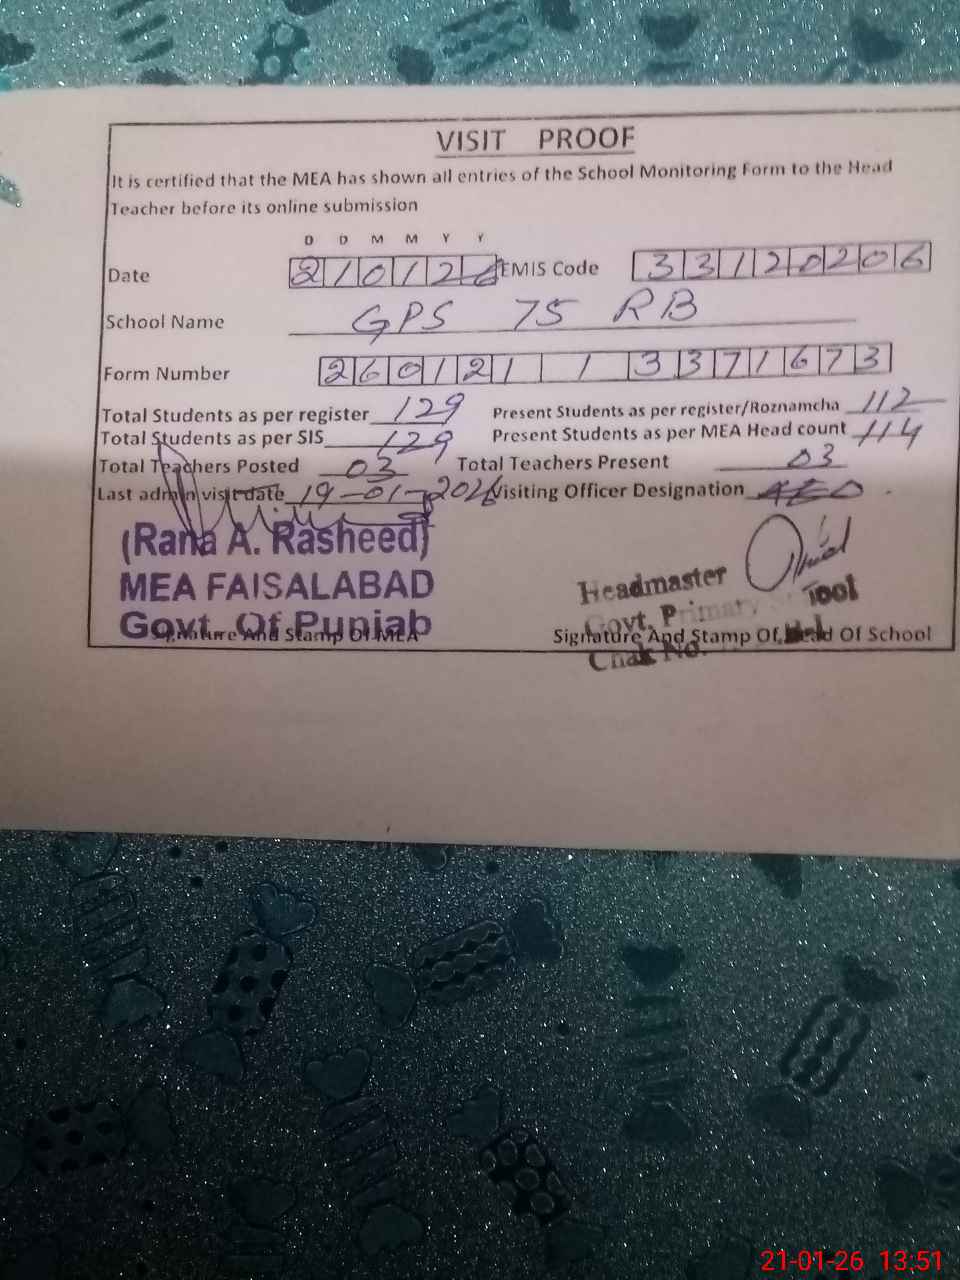 VISIT PROOF
It is certified that the MEA has shown all entries of the School Monitoring Form to the Head
Teacher before its online submission
D D M M Y Y
Date 210126 EMIS Code 33120206
School Name GPS 75 RB
Form Number 260121 1 3371673
Total Students as per register 129 Present Students as per register/Roznamcha 112
Total Students as per SIS 129 Present Students as per MEA Head count 114
Total Teachers Posted 03 Total Teachers Present 03
Last admin visit date 19-01-2026 Visiting Officer Designation AEO
(Rana A. Rasheed)
MEA FAISALABAD
Govt. Of Punjab
Signature And Stamp Of MEA
Headmaster
Govt. Primary
Chak No.
Signature And Stamp Of Head Of School
21-01-26 13:51